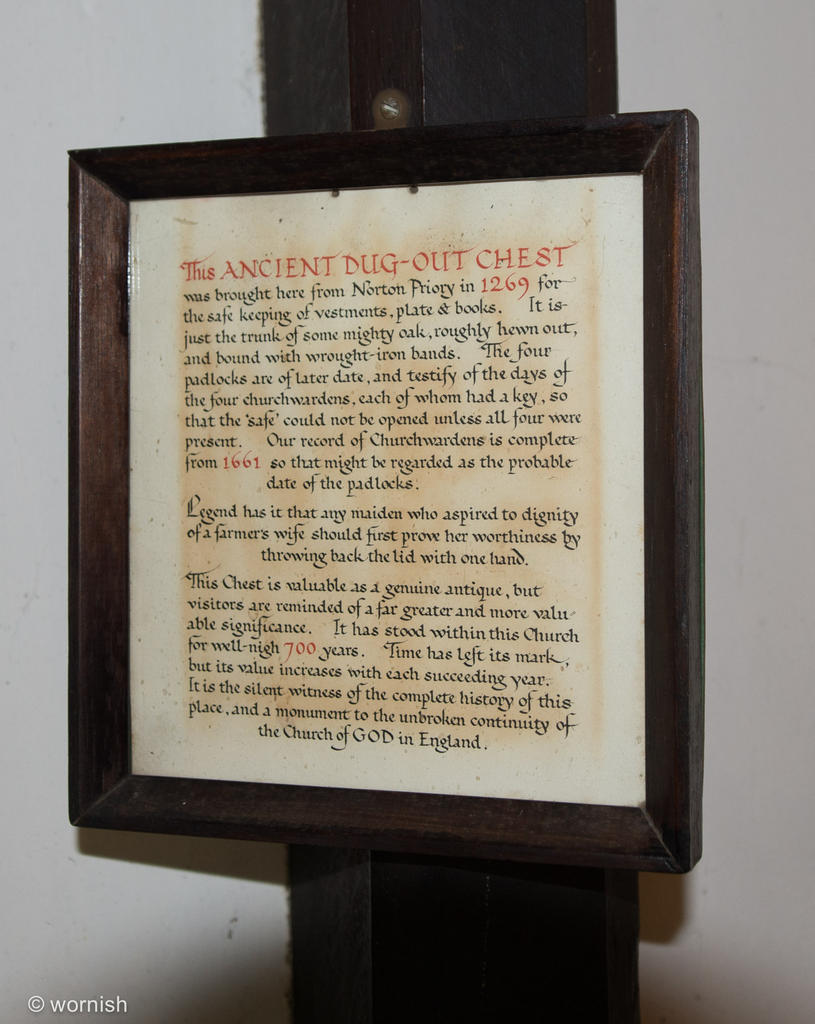 This ANCIENT DUG-OUT CHEST
was brought here from Norton Priory in 1269 for
the safe keeping of vestments, plate & books. It is
just the trunk of some mighty oak, roughly hewn out,
and bound with wrought-iron bands. The four
padlocks are of later date, and testify of the days of
the four churchwardens, each of whom had a key, so
that the 'safe' could not be opened unless all four were
present. Our record of Churchwardens is complete
from 1661 so that might be regarded as the probable
date of the padlocks.
Legend has it that any maiden who aspired to dignity
of a farmer's wife should first prove her worthiness by
throwing back the lid with one hand.
This Chest is valuable as a genuine antique, but
visitors are reminded of a far greater and more valu-
able significance. It has stood within this Church
for well-nigh 700 years. Time has left its mark,
but its value increases with each succeeding year.
It is the silent witness of the complete history of this
place, and a monument to the unbroken continuity of
the Church of GOD in England.
© wornish